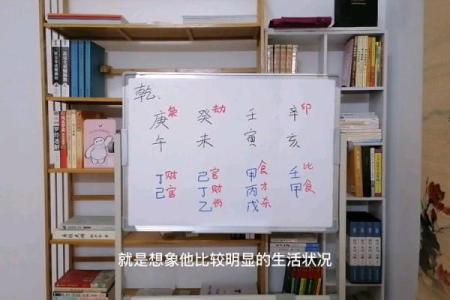 乾、
庚枭 癸劫 壬 辛印
午 未 寅 亥
丁财 己官 甲食 壬比
己官 丁财 丙才 甲食
乙伤 戊杀
就是想象他比较明显的生活状况